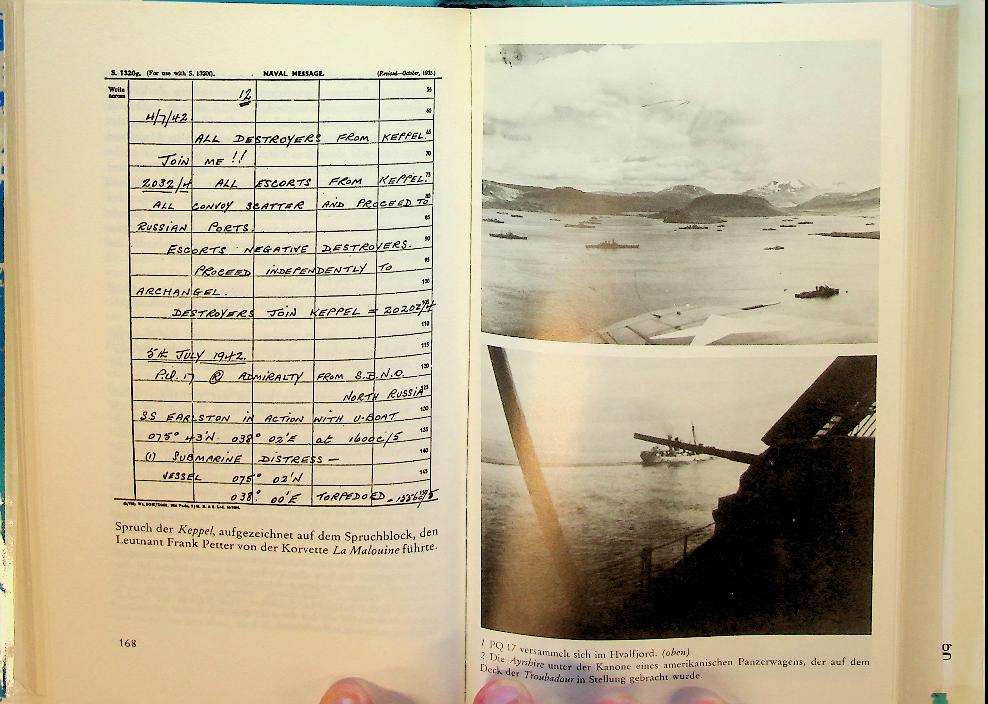 S. 1320g. (For use with S. 1320f). NAVAL MESSAGE. (Revised—October, 1935)
Write across
12 56
4/7/42 60
ALL DESTROYERS FROM KEPPEL. 65
JOIN ME !! 70
2032/4 ALL ESCORTS FROM KEPPEL. 75
ALL CONVOY SCATTER AND PROCEED TO 80
RUSSIAN PORTS. 85
ESCORTS NEGATIVE DESTROYERS. 90
PROCEED INDEPENDENTLY TO 95
ARCHANGEL. 100
DESTROYERS JOIN KEPPEL = 2020Z/4 105
110
5th JULY 1942. 115
P.Q. 17 ADMIRALTY FROM S.B.N.O. 120
NORTH RUSSIA 125
SS EARLSTON IN ACTION WITH U-BOAT 130
075° 43'N 038° 02'E at 1600C/5 135
(1) SUBMARINE DISTRESS — 140
VESSEL 075° 02'N 145
038° 00'E TORPEDOED
Spruch der Keppel, aufgezeichnet auf dem Spruchblock, den
Leutnant Frank Petter von der Korvette La Malouine führte.
168
1 PQ 17 versammelt sich im Hvalfjord. (oben)
2 Die Ayrshire unter der Kanone eines amerikanischen Panzerwagens, der auf dem
Deck der Troubadour in Stellung gebracht wurde.